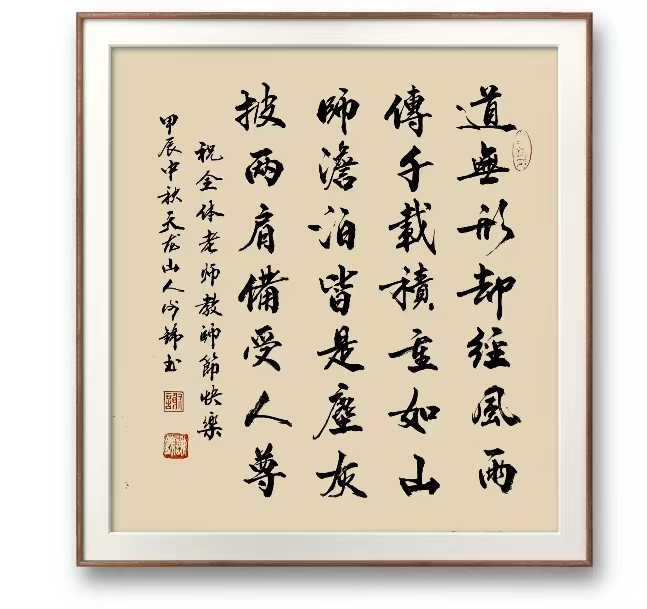 道無形却經風雨
傳千載積重如山
師澹泊皆是塵灰
披兩肩備受人尊
祝全体老师教師節快樂
甲辰中秋天龙山人何錦书